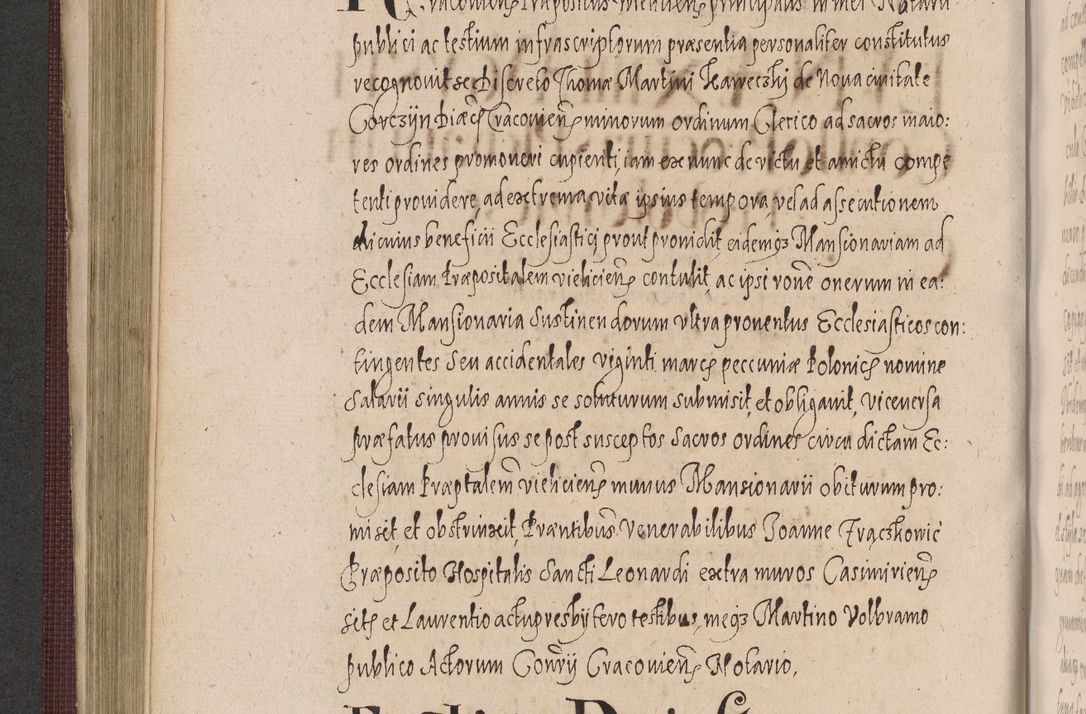 Cracovien Præpositus vielicien principalis in mei Notarii
publici ac testium infrascriptorum præsentia personaliter constitutus
recognovit se Discreto Thomæ Martini Kaweczki de Nova civitate
Gorczyn Diæc Cracovien minorum ordinum Clerico ad sacros maio:
res ordines promoveri cupienti, iam ex nunc de victu et amictu compe
tenti providere, ad extrema vitæ ipsius tempora, vel ad assecutionem
alicuius beneficii Ecclesiastici prout providit, eidemq3 Mansionariam ad
Ecclesiam Præpositalem vielicien contulit, ac ipsi rone onerum in ea:
dem Mansionaria sustinendorum ultra proventus Ecclesiasticos con:
tingentes seu accidentales viginti marc peccuniæ Polonic nomine
salarii singulis annis se soluturum submisit, et obligavit, viceversa
præfatus provisus se post susceptos sacros ordines circa dictam Ec:
clesiam Præptalem vielicien munus Mansionarii obiturum pro:
misit, et obstrinxit, Præntibus Venerabilibus Joanne Frączkowic
Præposito Hospitalis Sancti Leonardi extra muros Casimirien
sit et Laurentio actu presbytero testibus, meq3 Martino Volbramo
publico Actorum Conrii Cracovien Notario,